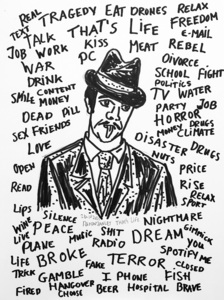 REAL TRAGEDY EAT DRONES RELAX
TEXT THAT'S LIFE FREEDOM
TALK KISS MEAT E-MAIL
JOB WORK PC REBEL
WAR DIVORCE
DRINK SCHOOL FIGHT
SMILE CONTENT POLITICS
MONEY TV WATER
DEAD PILL PARTY JOB
SEX FRIENDS HORROR
LOVE MONEY DRUGS
CLIMATE
DISASTER DRUGS
OPEN NUTS
READ PRICE
RISE
LIPS SILENCE RELAX
SPORT
WINE PEACE NIGHTMARE
LIVE MUSIC SHIT DREAM YOU
PLANE RADIO SPOTIFY ME
LIFE BROKE FAKE TERROR CLOSED
TRICK GAMBLE I PHONE FISH
FIRED HANGOVER BEER HOSPITAL BRAVE
CHOOSE